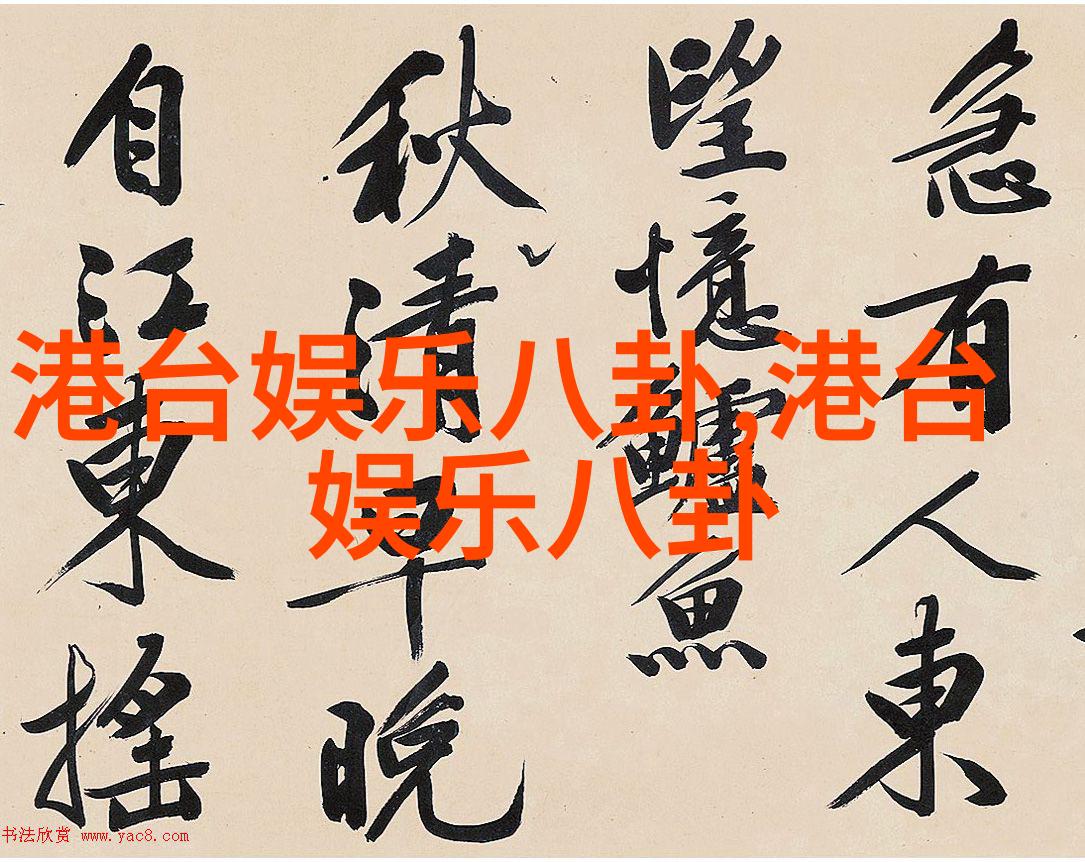 急有人東
望憶鱸魚
秋清早晚
自江東搖
港台娱乐八卦,港台
娱乐八卦
书法欣赏 www.yac8.com